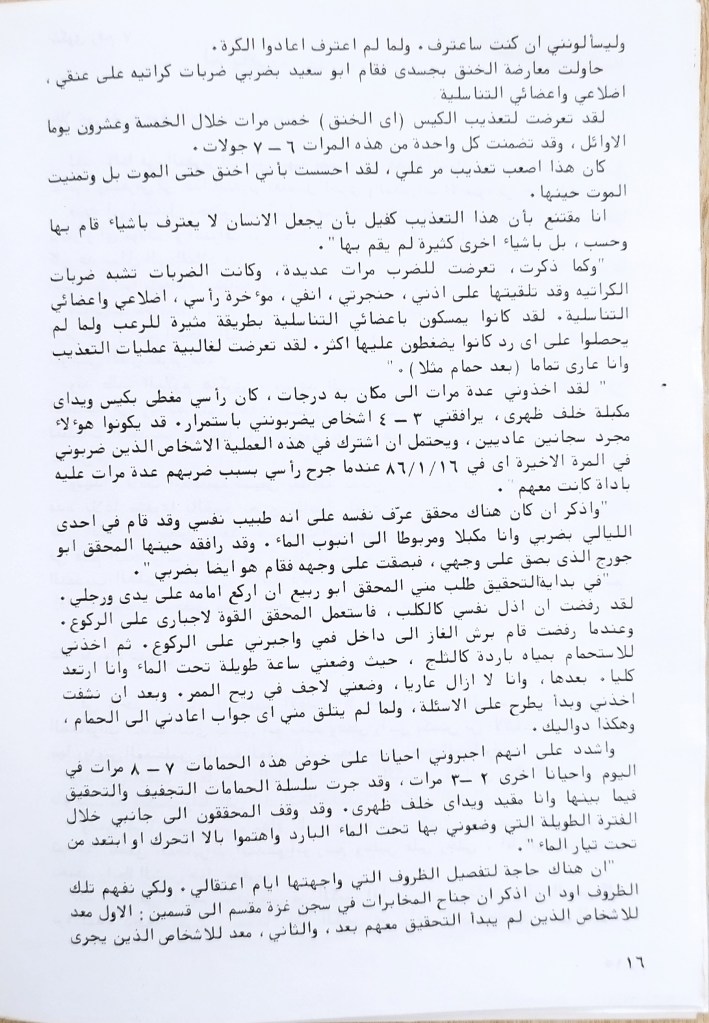 وليسألونني ان كنت ساعترف. ولما لم اعترف اعادوا الكرة.
حاولت معارضة الخنق بجسدى فقام ابو سعيد بضربي ضربات كراتيه على عنقي،
اضلاعي واعضائي التناسلية
لقد تعرضت لتعذيب الكيس (اى الخنق) خمس مرات خلال الخمسة وعشرون يوما
الاوائل، وقد تضمنت كل واحدة من هذه المرات ٦ – ٧ جولات.
كان هذا اصعب تعذيب مر علي، لقد احسست بأني اخنق حتى الموت بل وتمنيت
الموت حينها.
انا مقتنع بأن هذا التعذيب كفيل بأن يجعل الانسان لا يعترف باشياء قام بها
وحسب، بل باشياء اخرى كثيرة لم يقم بها".
"وكما ذكرت، تعرضت للضرب مرات عديدة، وكانت الضربات تشبه ضربات
الكراتيه وقد تلقيتها على اذني، حنجرتي، انفي، مؤخرة رأسي، اضلاعي واعضائي
التناسلية. لقد كانوا يمسكون باعضائي التناسلية بطريقة مثيرة للرعب ولما لم
يحصلوا على اى رد كانوا يضغطون عليها اكثر. لقد تعرضت لغالبية عمليات التعذيب
وانا عارى تماما (بعد حمام مثلا)."
" لقد اخذوني عدة مرات الى مكان به درجات، كان رأسي مغطى بكيس ويداى
مكبلة خلف ظهرى، يرافقني ٣ – ٤ اشخاص يضربونني باستمرار. قد يكونوا هؤلاء
مجرد سجانين عاديين، ويحتمل ان اشترك في هذه العملية الاشخاص الذين ضربوني
في المرة الاخيرة اى في ٨٦/١/١٦ عندما جرح رأسي بسبب ضربهم عدة مرات عليه
باداة كانت معهم".
"واذكر ان كان هناك محقق عرّف نفسه على انه طبيب نفسي وقد قام في احدى
الليالي بضربي وانا مكبلا ومربوطا الى انبوب الماء. وقد رافقه حينها المحقق ابو
جورج الذى بصق على وجهي، فبصقت على وجهه فقام هو ايضا بضربي".
"في بداية التحقيق طلب مني المحقق ابو ربيع ان اركع امامه على يدى ورجلي.
لقد رفضت ان اذل نفسي كالكلب، فاستعمل المحقق القوة لاجبارى على الركوع.
وعندما رفضت قام برش الغاز الى داخل فمي واجبرني على الركوع. ثم اخذني
للاستحمام بمياه باردة كالثلج، حيث وضعني ساعة طويلة تحت الماء وانا ارتعد
كليا. بعدها، وانا لا ازال عاريا، وضعني لاجف في ريح الممر. وبعد ان نشفت
اخذني وبدأ يطرح على الاسئلة، ولما لم يتلق مني اى جواب اعادني الى الحمام،
وهكذا دواليك.
واشدد على انهم اجبروني احيانا على خوض هذه الحمامات ٧ – ٨ مرات في
اليوم واحيانا اخرى ٢ –٣ مرات، وقد جرت سلسلة الحمامات التجفيف والتحقيق
فيما بينها وانا مقيد ويداى خلف ظهرى. وقد وقف المحققون الى جانبي خلال
الفترة الطويلة التي وضعوني بها تحت الماء البارد واهتموا بالا اتحرك او ابتعد من
تحت تيار الماء".
"ان هناك حاجة لتفصيل الظروف التي واجهتها ايام اعتقالي. ولكي نفهم تلك
الظروف اود ان اذكر ان جناح المخابرات في سجن غزة مقسم الى قسمين: الاول معد
للاشخاص الذين لم يبدأ التحقيق معهم بعد، والثاني، معد للاشخاص الذين يجرى
١٦